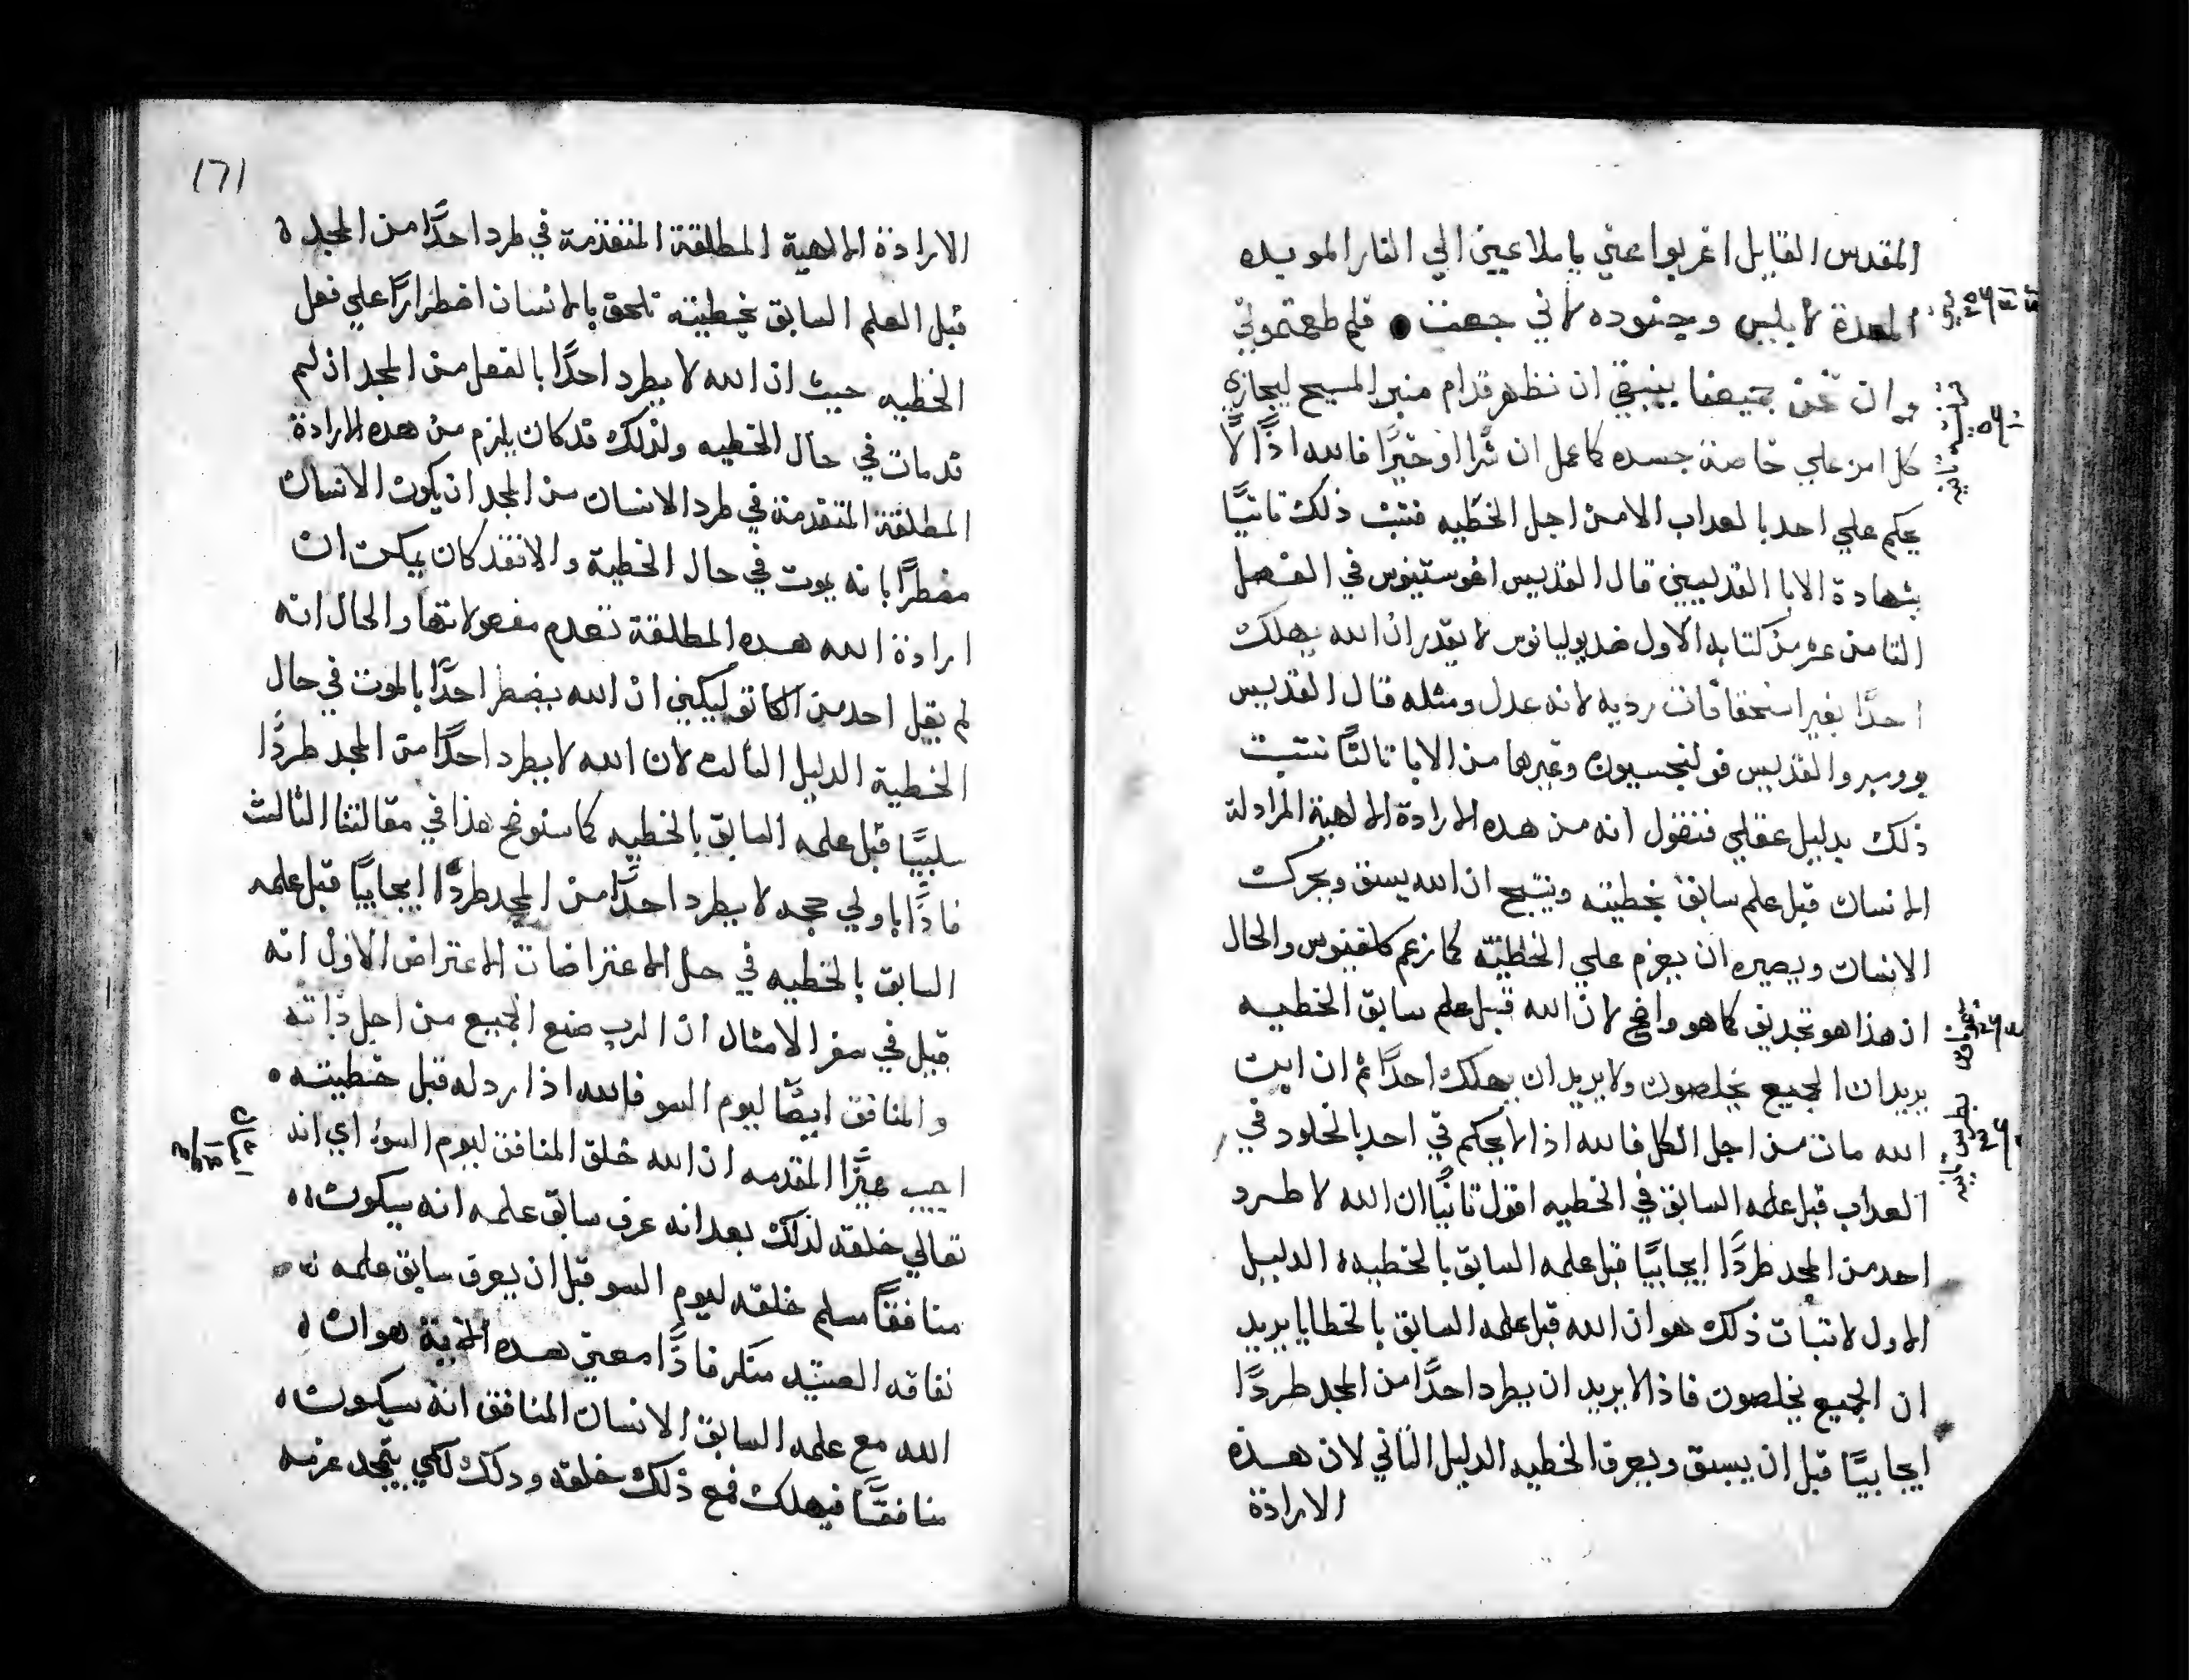 المقدس القايل اغربوا عني يا ملاعين الي النار الموبده
المعدة لابليس وجنوده لاني جعت فلم طعمتموني
وان نحن جميعنا ينبغي ان نظهر قدام منبر المسيح ليجازي
كل امر علي خاصة جسده كما عمل ان شرًا او خيرًا فالله اذًا لا
يحكم علي احد بالعداب الا من اجل الخطيه فنثبت ذلك ثانيًا
بشهادة الابا القديسين قال القديس اغوستينوس في الفصل
التامن عشر من كتابه الاول ضد يوليانوس لا يقدر ان الله يهلك
احدًا بغير استحقاقات رديه لانه عدل ومثله قال القديس
والقديس فولنجسيوس وغيرها من الابا تالتًا نتبت
ذلك بدليل عقلي فنقول انه من هده الارادة الالاهية المرادلة
الانسان قبل علم سابق بخطيته وينتج ان الله يسبق ويحرك
الانسان ويصيره ان يعزم علي الخطيّه كما زعم كلفينوس والحال
ان هذا هو تجديف كما هو واضح لان الله قبل علم سابق الخطيه
يريد ان الجميع يخلصون ولا يريد ان يهلك احدًا ثم ان ابن
الله مات من اجل الكل فالله اذا لا يحكم في احد بالخلود في
العداب قبل علمه السابق في الخطيه اقول ثانيًا ان الله لا طرد
احد من المجد طردًا ايجابيًا قبل علمه السابق بالخطيه الدليل
الاول لاتبات ذلك هو ان الله قبل علمه السابق بالخطايا يريد
ان الجميع يخلصون فاذا لا يريد ان يطرد احدًا من المجد طردًا
ايجابيًا قبل ان يسبق ويعرف الخطيه الدليل الثاني لان هذه
الارادة
متي ٢٥
قرنتيه ثانيه
٥
تيموتاوس
٢
بطرس ثانيه
٣
171
الارادة الالاهية المطلقة المتقدمة في طرد احدًا من المجد
قبل العلم السابق بخطيته تلحق بالانسان اضطرارًا علي فعل
الخطيه حيث ان الله لا يطرد احدًا بالفعل من المجد ان لم
تدمات في حال الخطيه ولذلك قد كان يلزم من هده الارادة
المطلقة المتقدمة في طرد الانسان من المجد ان يكون الانسان
مضطرًا بانه يموت في حال الخطية والا فقد كان يمكن ان
ارادة الله هده المطلقة تعدم مفعولاتها والحال انه
لم يقل احد من الكاتوليكيين ان الله يضطر احدًا بالموت في حال
الخطية الدليل التالت لان الله لا يطرد احدًا من المجد طردًا
سلبيًا قبل علمه السابق بالخطيه كما سنوضح هذا في مقالتنا الثالث
فاذًا باولي حجه لا يطرد احدًا من المجد طردًا ايجابيًا قبل علمه
السابق بالخطيه في حل الاعتراضات الاعتراض الاول انه
قيل في سفر الامثال ان الرب صنع الجميع من اجل ذاته
والمنافق ايضًا ليوم السو فالله اذا رذله قبل خطيته
اجيب مميزًا المقدمه ان الله خلق المنافق ليوم السوء اي انه
تعالي خلقه لذلك بعد انه عرف سابق علمه انه سيكون
منافقًا مسلم خلقه ليوم السو قبل ان يعرف سابق علمه
نفاقه العتيد منكر فاذًا معني هده الاية هو ان
الله مع علمه السابق الانسان المنافق انه سيكون
منافقًا فيهلك فمع ذلك خلقه ودلك لكي يتمجد عزمه
امثال